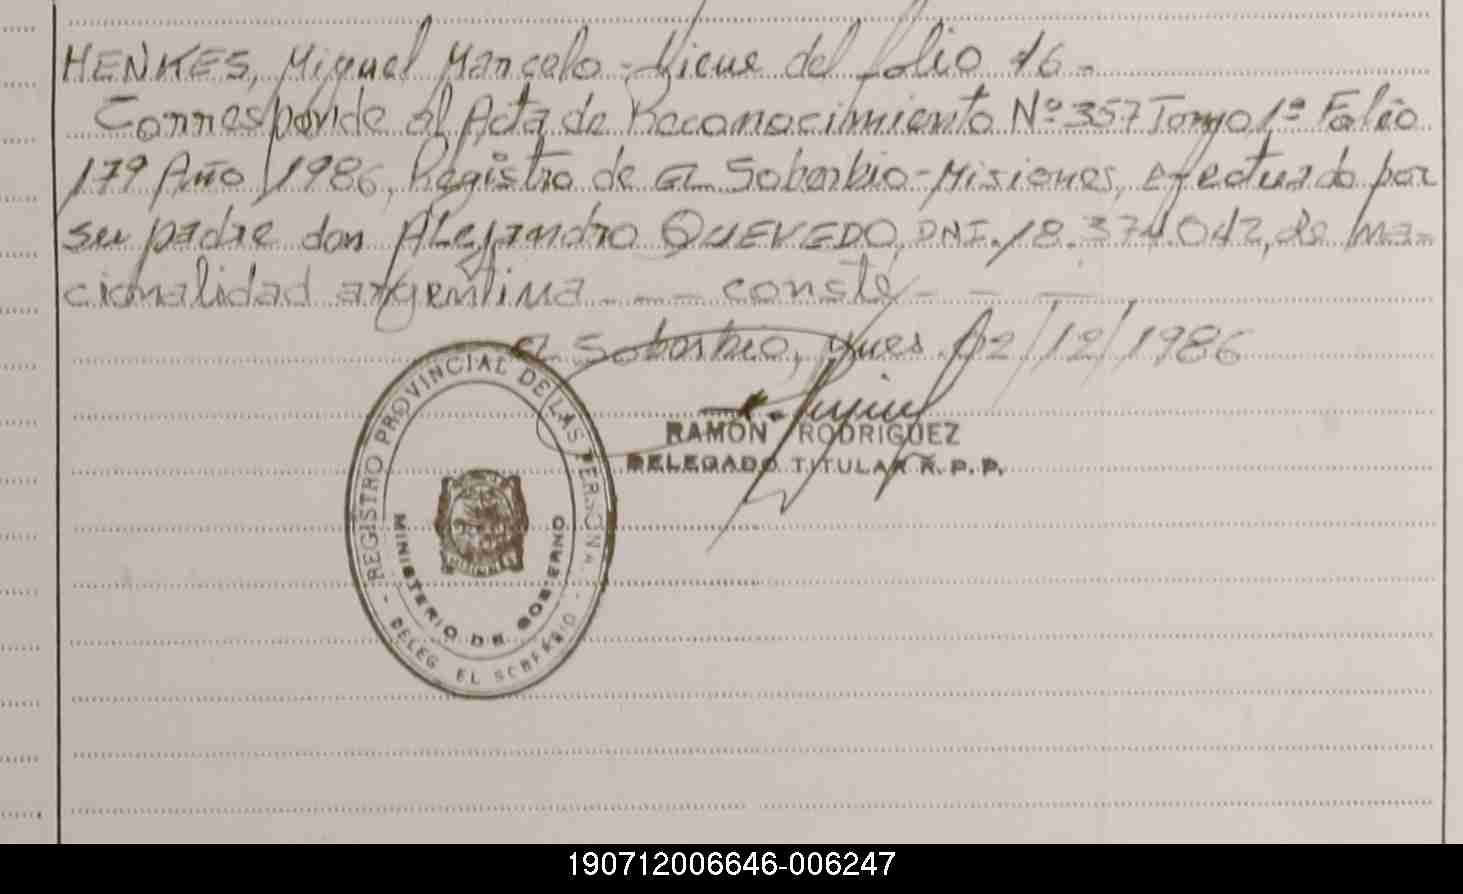 HENKES, Miguel Marcelo - Viene del folio 16 -
Corresponde al Acta de Reconocimiento Nº 357 Tomo 1º Folio
179 Año 1986, Registro de El Soberbio - Misiones, efectuado por
su padre don Alejandro QUEVEDO, DNI. 18.374.042, de na-
cionalidad argentina - - - conste - - -
El Soberbio, Mnes. 02/12/1986
RAMON RODRIGUEZ
DELEGADO TITULAR R. P. P.
REGISTRO PROVINCIAL DE LAS PERSONAS
MINISTERIO DE GOBIERNO
- DELEG. EL SOBERBIO -
190712006646-006247